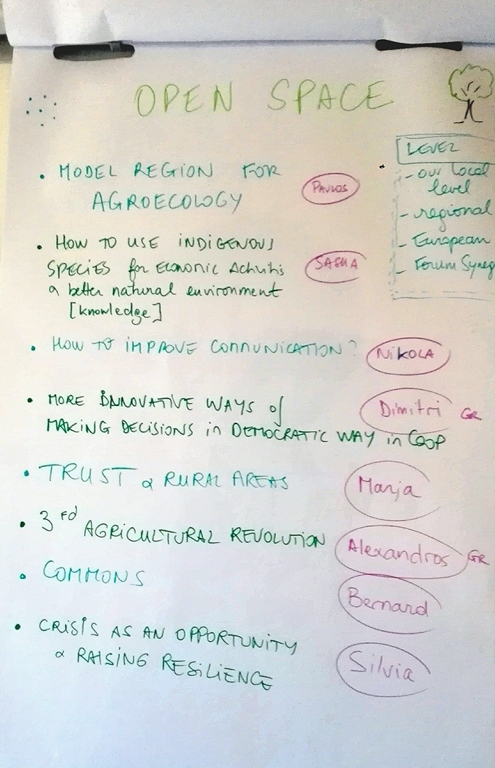 OPEN SPACE
LEVEL
- our local
level
- regional
- European
- Forum Syneg
• MODEL REGION FOR
AGROECOLOGY
PAVLOS
• HOW TO USE INDIGENOUS
SPECIES for Economic Activitis
& better natural environment
[knowledge]
SASHA
• HOW TO IMPROVE COMMUNICATION?
NIKOLA
• MORE INNOVATIVE WAYS of
MAKING DECISIONS in DEMOCRATIC WAY in COOP
Dimitri GR
• TRUST & RURAL AREAS
Manja
• 3rd AGRICULTURAL REVOLUTION
Alexandros GR
• COMMONS
Bernard
• CRISIS AS AN OPPORTUNITY
& RAISING RESILIENCE
Silvia